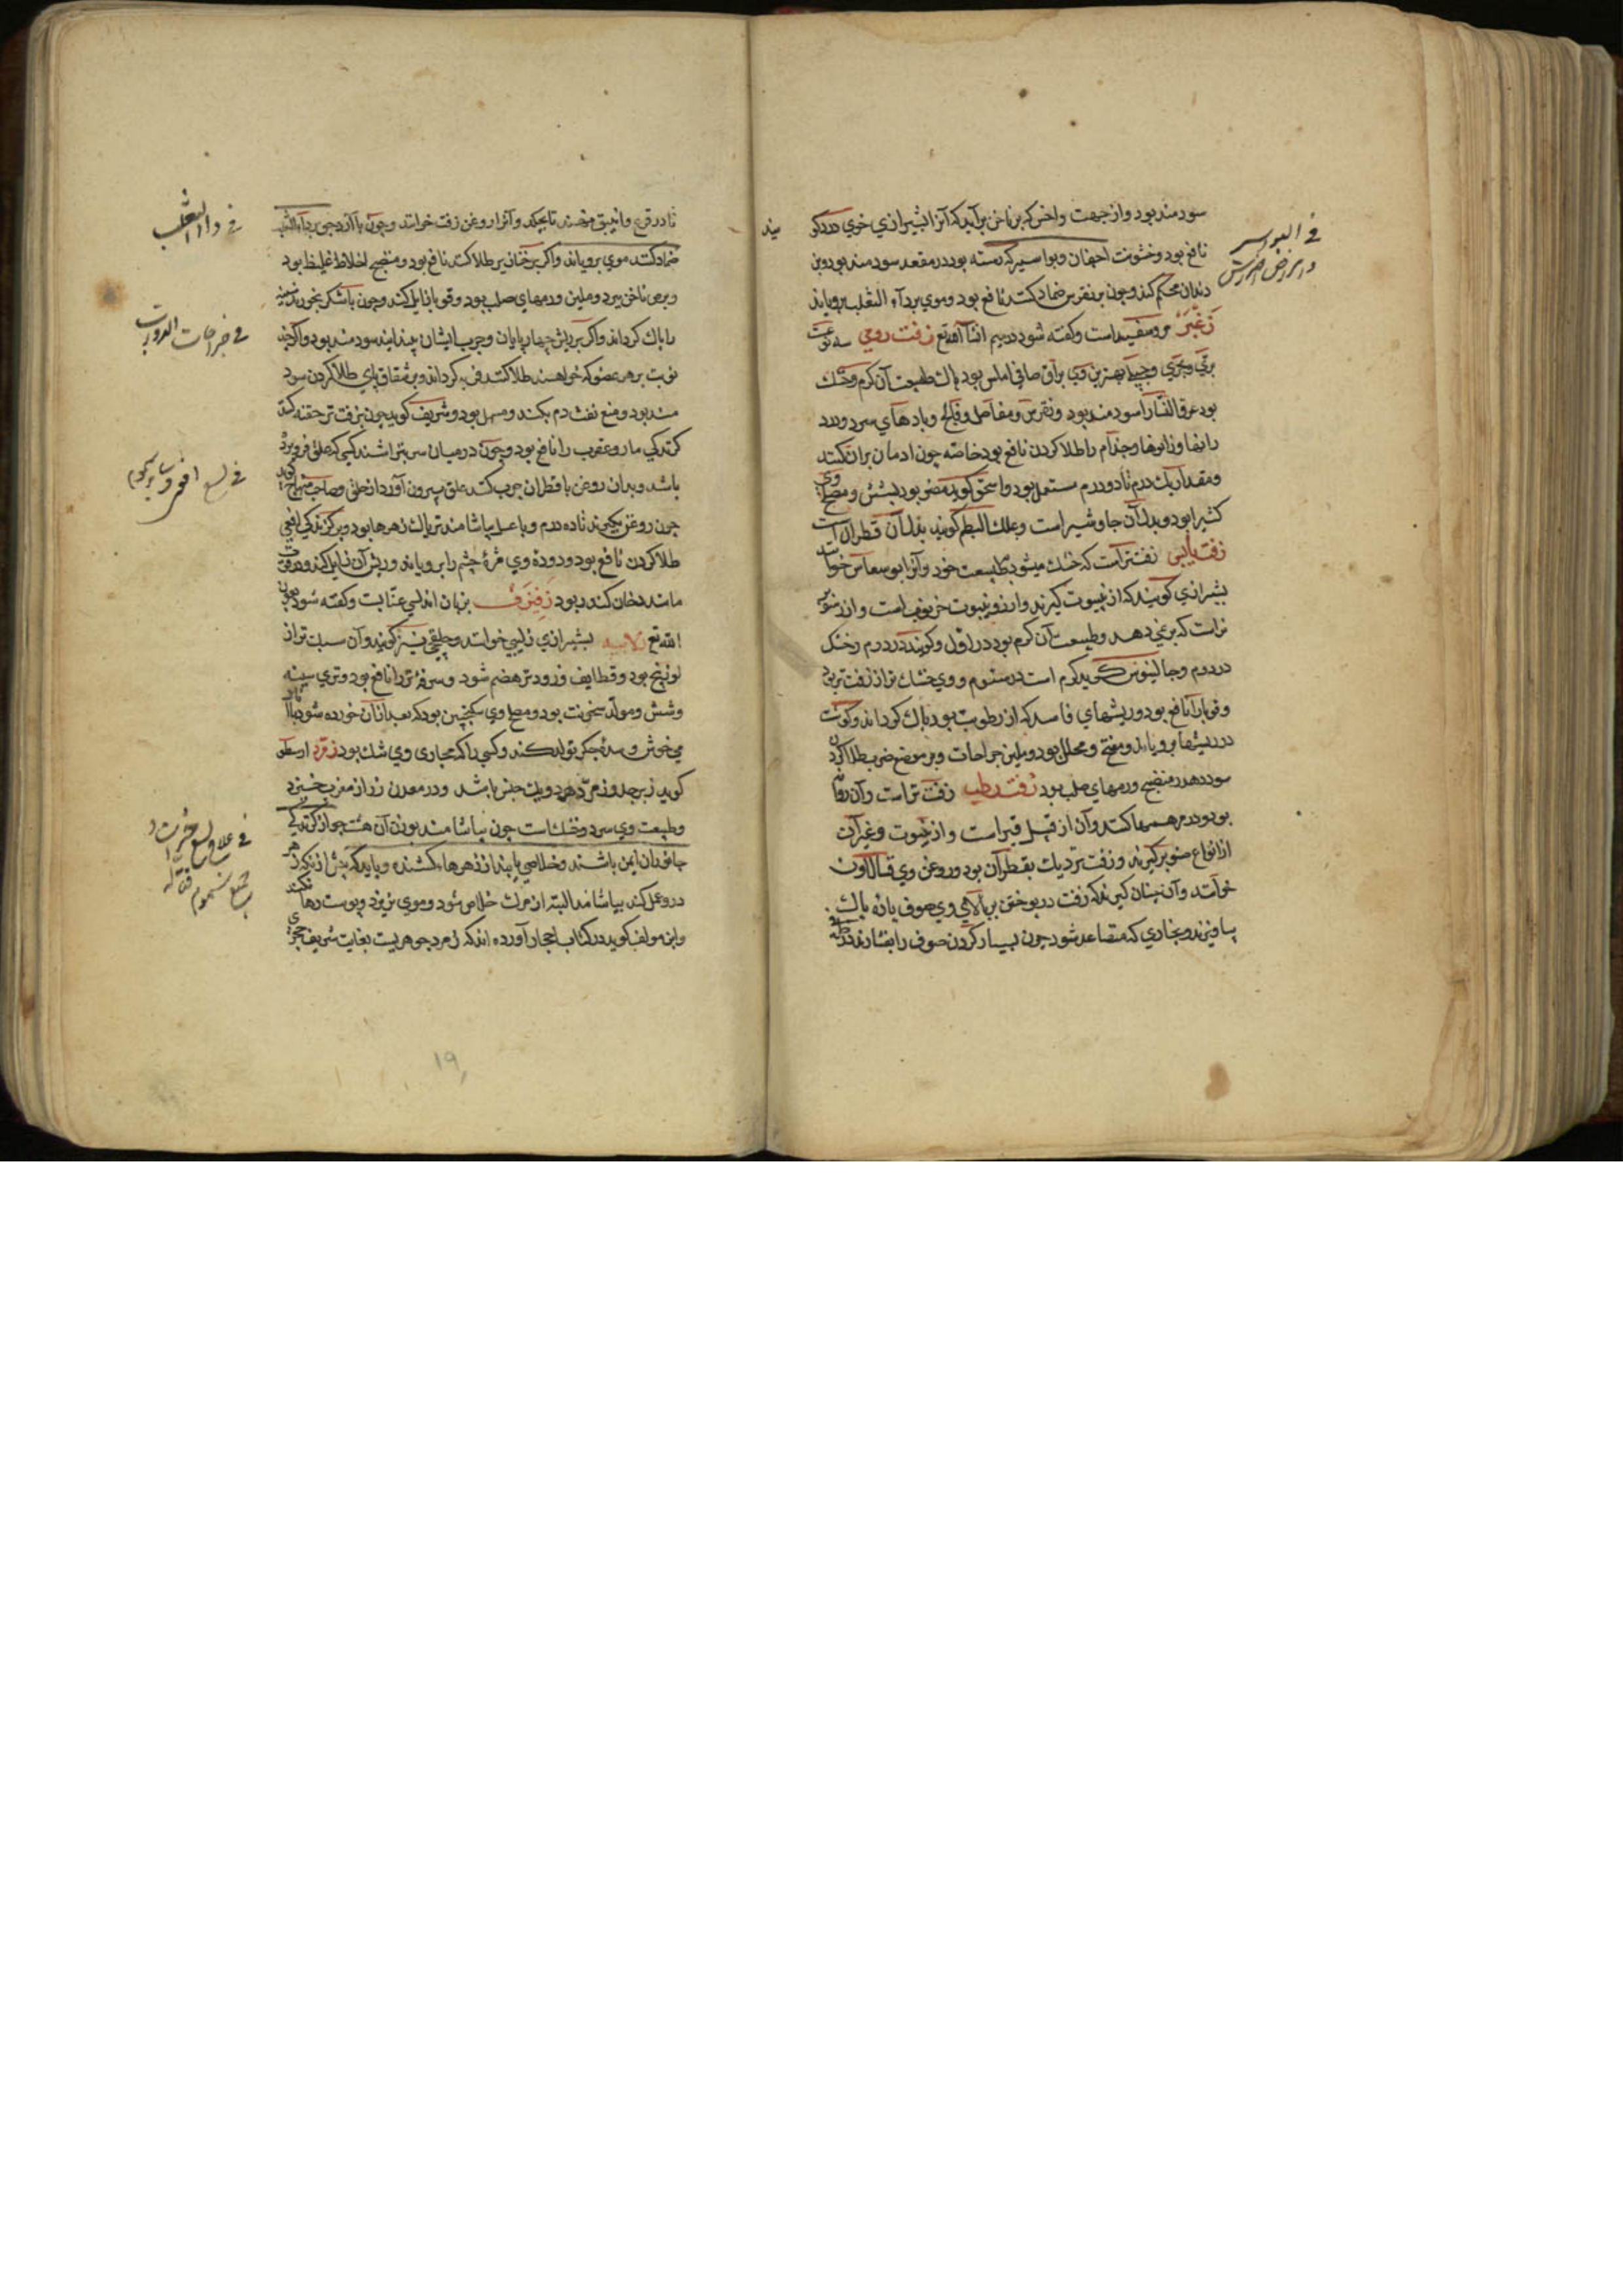 سودمند بود و از جهت داخس که بر ناخن برآید که آنرا بشیرازی خوی درد کو
نافع بود و خشونت اجفان و بواسیر که رسته بود در مقعد سودمند بود و بن
دندان محکم کند و چون بر نقرس ضماد کنند نافع بود و موی بر داء الثعلب برویاند
زغبر مرو سفید است و کفته شود در میم ان شاء الله تع زفت رومی سه نوعست
بری و بحری و جبلی بهترین وی براق صافی املس بود پاک طبیعت آن کرم و خشک
بود عرق النسا را سودمند بود و نقرس و مفاصل و فالج و بادهای سرد و درد
رانها و زانوها و جذام را طلا کردن نافع بود خاصه چون ادمان بران کنند
و مقدار یک درم تا دو درم مستعمل بود و اسحق کوید مضر بود بشش و مصلح وی
کثیرا بود و بدل آن جاوشیر است و علک البطم کویند بدل آن قطران است
زفت یابس زفت تر است که خشک میشود بطبیعت خود و آنرا خوانند
بشیرازی کویند که از ینبوت کیرند و ارز و ینبوت خرنوب است و ارز صنوبر
نر است که بر نمی دهد و طبیعت آن کرم بود در اول و کویند در دوم و خشک
در دوم و جالینوس کوید کرم است در سوم و وی خشک تر از زفت تر بود
و قوبا را نافع بود و ریشهای فاسد که از رطوبت بود پاک کرداند و کوشت
در ریشها برویاند و مفتح و محلل بود و ملین جراحات و بر موضع ضرب طلا کردن
سود دهد و منضج ورمهای صلب بود زفت رطب زفت تر است و آن روان
بود و در مرهمها کنند و آن از قبل قیر است و از ینبوت و غیر آن
از انواع صنوبر کیرند و زفت نزدیک بقطران بود و روغن وی قسالاون
خوانند و آن چنان کیرند که زفت در پوختن بر بالای وی صوف پاره پاک
بیاویزند و بخاری که متصاعد شود چون بسیار کردن صوف را بفشارند در ظرفی
فی البواسیر
تا در قرع و انبیق نهند تا بچکد و آنرا روغن زفت خوانند و چون با آرد جو بر داء الثعلب
ضماد کنند موی برویاند و اکر بر خنازیر طلا کنند نافع بود و منضج اخلاط غلیظ بود
و برص ناخن ببرد و ملین ورمهای صلب بود و قوبا زایل کند و چون با شکر بخورند سینه
را پاک کرداند و اکر بر ریش چهارپایان و جرب ایشان بیندایند سودمند بود و اکر چند
نوبت بر هر عضو که خواهند طلا کنند فربه کرداند و بر شقاق پای طلا کردن سود
مند بود و منع نفث دم بکند و مسهل بود و شریف کوید چون بزفت تر حقنه کنند
کزندکی مار و عقرب را نافع بود و چون در میان سر بتراشند کسی که علق فرو برده
باشد و بدان روغن با قطران چرب کنند علق بیرون آورد از حلق و صاحب منهاج کوید
چون روغن بکیرند تا ده درم و با عسل بیاشامند تریاک زهرها بود و بر کزندکی افعی
طلا کردن نافع بود و دوده وی مژه چشم را برویاند و ریش آن زایل کند و قوت
مانند دخان کندر بود زفیزف بزبان اندلسی عنابست و کفته شود بعون
الله تع زلابیه بشیرازی زلیبی خوانند و چلیقی نیز کویند و آن سبک تر از
لوزینج بود و قطایف و زودتر هضم شود و سرفه تر را نافع بود و تری سینه
و شش و مولد سخونت بود و مصلح وی سکنجبین بود که بعد از آن خورده شود یا انار
می خوش و سده جکر تولد کند و کسی را که مجاری وی تنک بود زمرد ارسطو
کوید زبرجد و زمرد هر دو یک جنس باشند و در معدن زر از مغرب خیزد
و طبیعت وی سرد و خشک است چون بیاشامند بوزن آن هشت جو از کزندکی
جانوران ایمن باشند و خلاصی یابند از زهرهاء کشنده و باید که پیش از آنکه زهر
در وی عمل کند بیاشامد البته از مرک خلاص شود و موی نریزد و پوست رها نکند
و ابن مولف کوید در کتاب احجار آورده اند که زمرد جوهریست بغایت شریف حجری
فی داء الثعلب
فی جراحات
فی لسع افعی
فی علاج لسع
۱۹